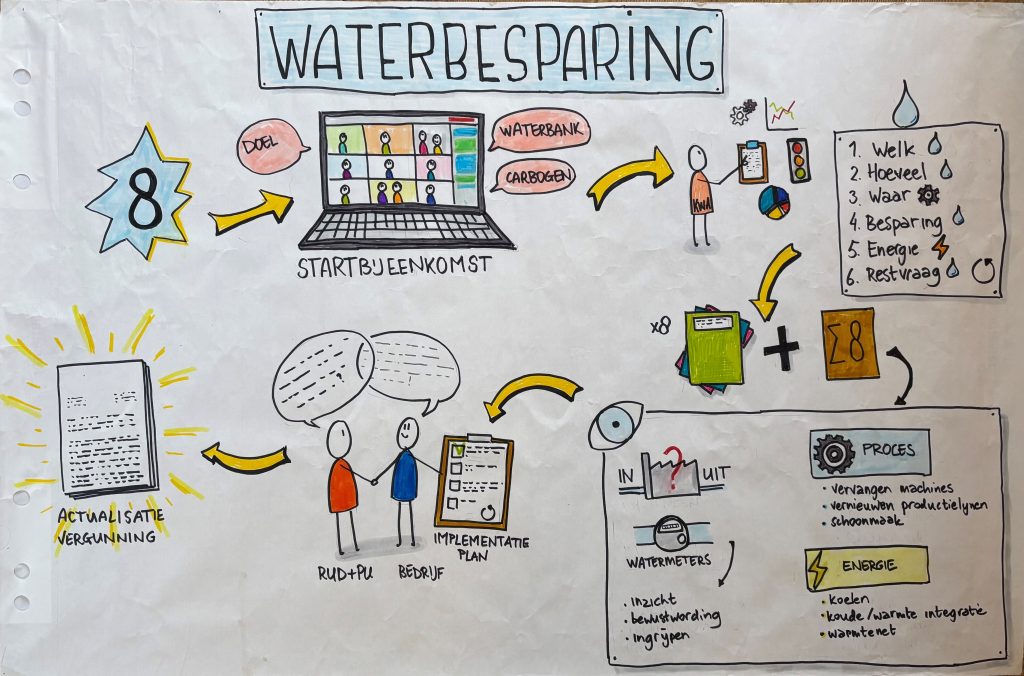 WATERBESPARING
8
DOEL
WATERBANK
CARBOGEN
STARTBIJEENKOMST
KWA
1. Welk
2. Hoeveel
3. Waar
4. Besparing
5. Energie
6. Restvraag
x8
+
Σ8
IN ? UIT
WATERMETERS
• inzicht
• bewustwording
• ingrijpen
PROCES
• vervangen machines
• vernieuwen productielijnen
• schoonmaak
ENERGIE
• koelen
• koude/warmte integratie
• warmtenet
IMPLEMENTATIE
PLAN
RUD+PU
BEDRIJF
ACTUALISATIE
VERGUNNING